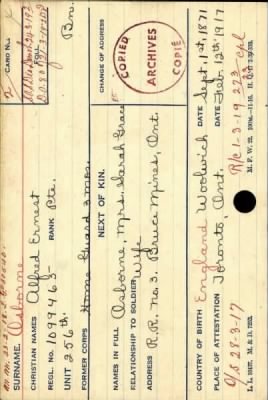 CARD NO.
2
SURNAME. Osborne
CHRISTIAN NAMES Alfred Ernest
REGL. NO. 1099463 RANK Pte.
UNIT 256th. Bn.
FORMER CORPS Home Guard 3 mos.
NEXT OF KIN.
CHANGE OF ADDRESS
NAMES IN FULL Osborne, Mrs. Sarah Grace
RELATIONSHIP TO SOLDIER Wife
ADDRESS R.R. No. 3. Bruce Mines, Ont
COPIED
ARCHIVES
COPIÉ
COUNTRY OF BIRTH England Woolwich DATE Sept. 1st, 1871
PLACE OF ATTESTATION Toronto, Ont. DATE Feb. 12th 1917
O/S 28-3-17 R/C 1-3-19 273 Cpl
M. F. W. 22.